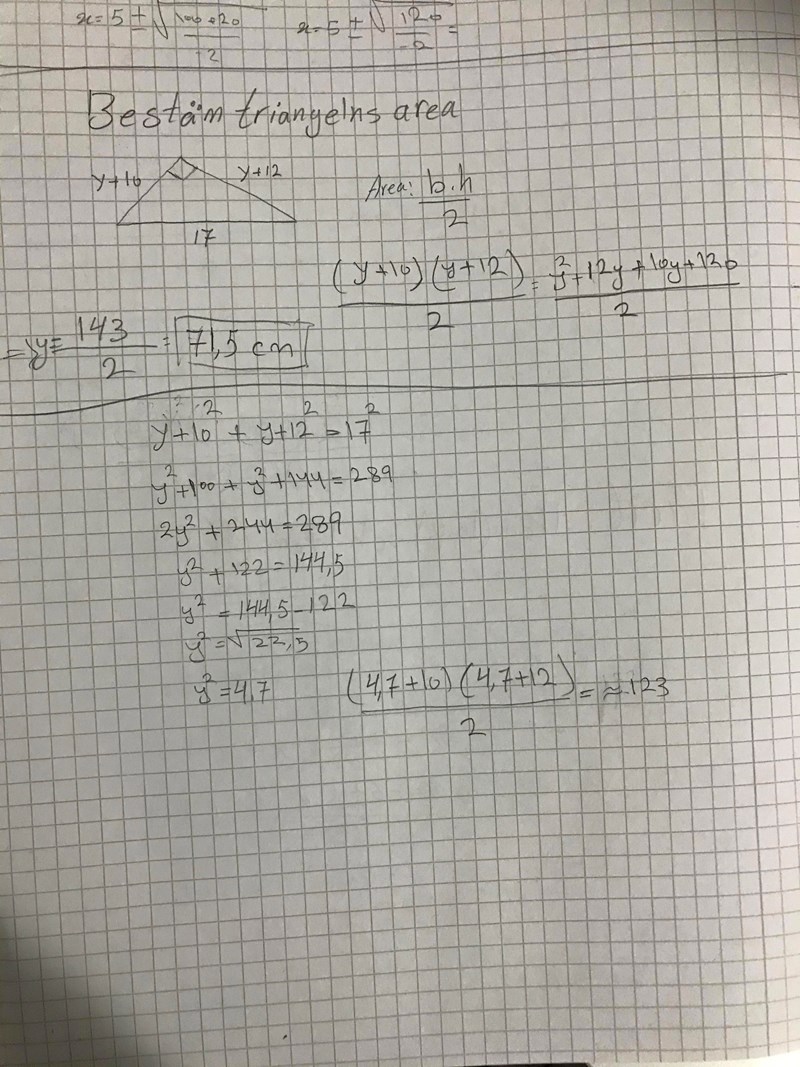 x = 5 ± √120/-2 =
Bestäm triangelns area
y+10 y+12 17
Area: b·h/2
(y+10)(y+12)/2 = y²+12y+10y+120/2
= 143/2 = 71,5 cm
y+10² + y+12² = 17²
y²+100 + y²+144 = 289
2y² + 244 = 289
y² + 122 = 144,5
y² = 144,5 - 122
y² = √22,5
y² = 4,7
(4,7+10)(4,7+12)/2 = ≈ 123